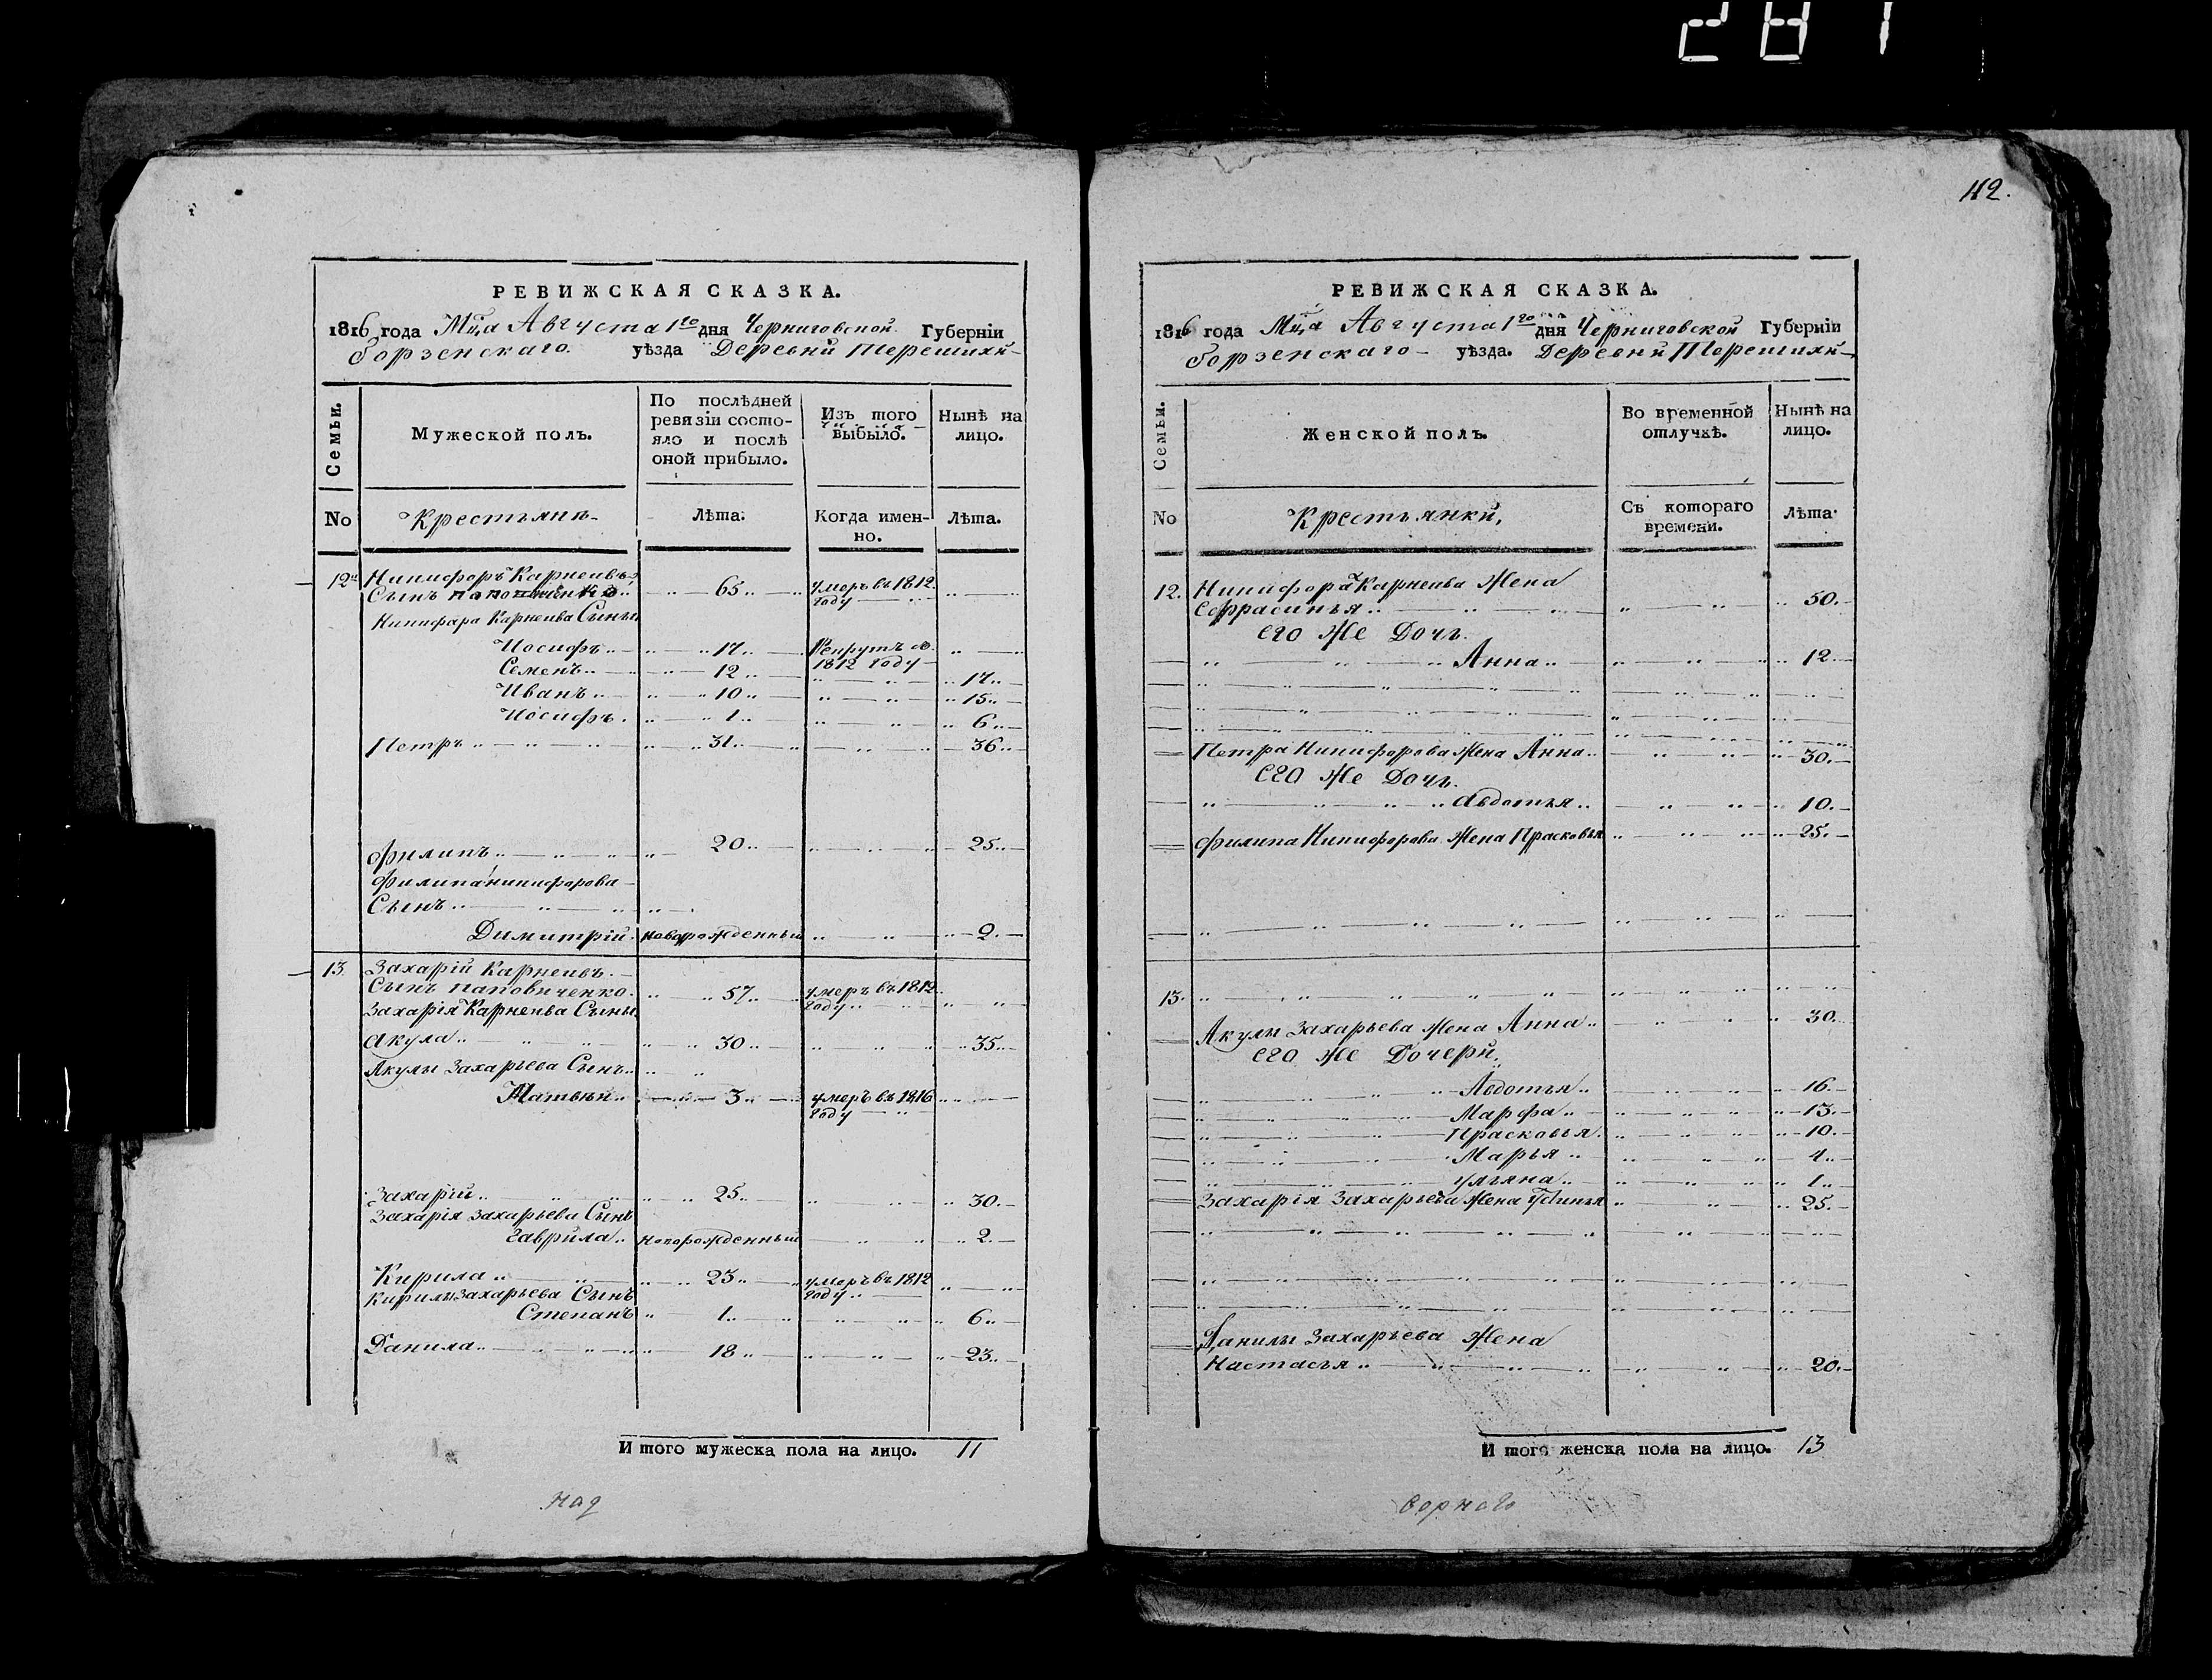 281
РЕВИЖСКАЯ СКАЗКА.
1816 года Мца Августа 1го дня Черниговской Губерніи
борзенскаго уѣзда Деревни Терешихи
Семьи.
Мужеской полъ.
По послѣдней ревязіи состояло и послѣ оной прибыло.
Изъ того выбыло.
Нынѣ на лицо.
No
Крестьянъ
Лѣта.
Когда именно.
Лѣта.
12 Никифоръ Карнеивъ
Сынъ 65 умеръ въ 1812 году
Никифара Карнеива Сыны
Иосифъ 17 Рекрутъ
1812 году
Семенъ 12 17
Иванъ 10 15
Иосифъ 1 6
Петръ 31 36
Филипъ 20 25
Филипа никифорова
Сынъ
Димитрій новорожденный 2
13 Захарій Карнеивъ
Сынъ паповиченко 57 умеръ въ 1812 году
Захарія Карнеива Сыны
Акула 30 35
Акулы Захарьева Сынъ
Матвѣи 3 умеръ въ 1816 году
Захарій 25 30
Захарія захарьева Сынъ
Гаврила новорожденный 2
Кирила 23 умеръ въ 1812 году
Кирилы захарьева Сынъ
Степанъ 1 6
Данила 18 23
И того мужеска пола на лицо. 11
над
42.
РЕВИЖСКАЯ СКАЗКА.
1816 года Мца Августа 1го дня Черниговской Губерніи
борзенскаго уѣзда. Деревни Терешихи
Семьи.
Женской полъ.
Во временной отлучкѣ.
Нынѣ на лицо.
No
Крестьянки,
Съ котораго времени.
Лѣта.
12. Никифора Карнеива Жена
Ефрасинья 50
его же Дочь
Анна 12
Петра Никифорова Жена Анна 30
его же Дочь
Авдотья 10
Филипа Никифорова Жена Прасковья 25
13.
Акулы Захарьева Жена Анна 30
его же Дочери
Авдотья 16
Марфа 13
Прасковья 10
Марья 4
Ульяна 1
Захарія Захарьева Жена Устинья 25
Данилы Захарьева Жена
Настасья 20
И того женска пола на лицо. 13
ворнаго